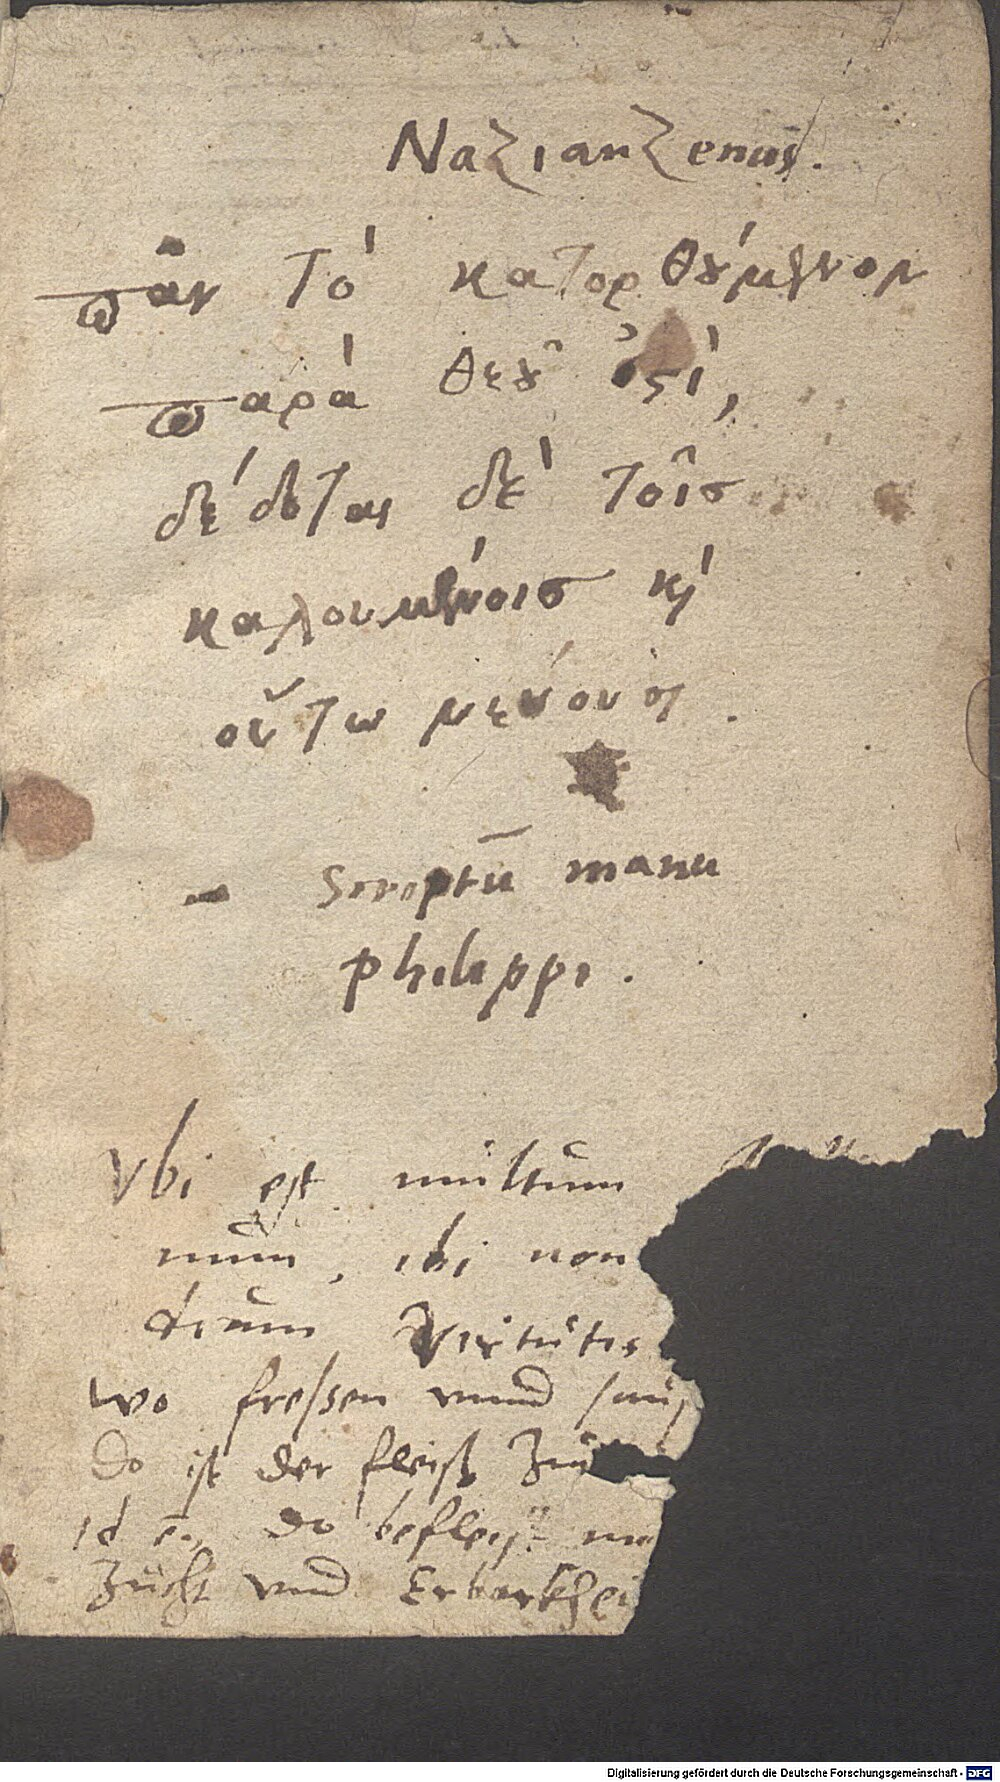 Nazianzenus.
πᾶν τὸ κατορθούμενον
παρὰ θεοῦ ἐστὶ,
δέδοται δὲ τοῖσ
καλουμένοισ κὶ
οὕτω μενουσι.
– Scriptū manu
philippi.
Vbi est multum
num, ibi non
dium Virtutis
wo freßen vnnd sauf
Do ist der fleiß Zu
id e. do befleist
Zucht vnd Erbarkhei
Digitalisierung gefördert durch die Deutsche Forschungsgemeinschaft - DFG